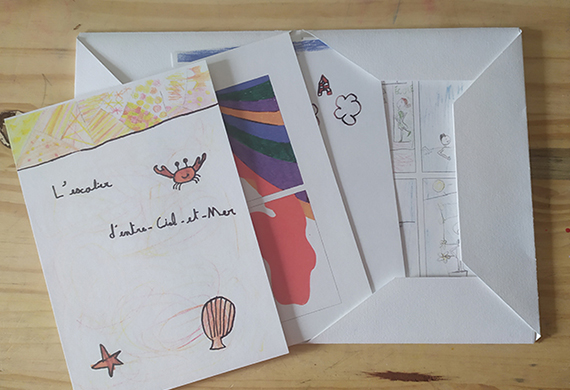 L'escalier
d'entre-Ciel-et-Mer
A